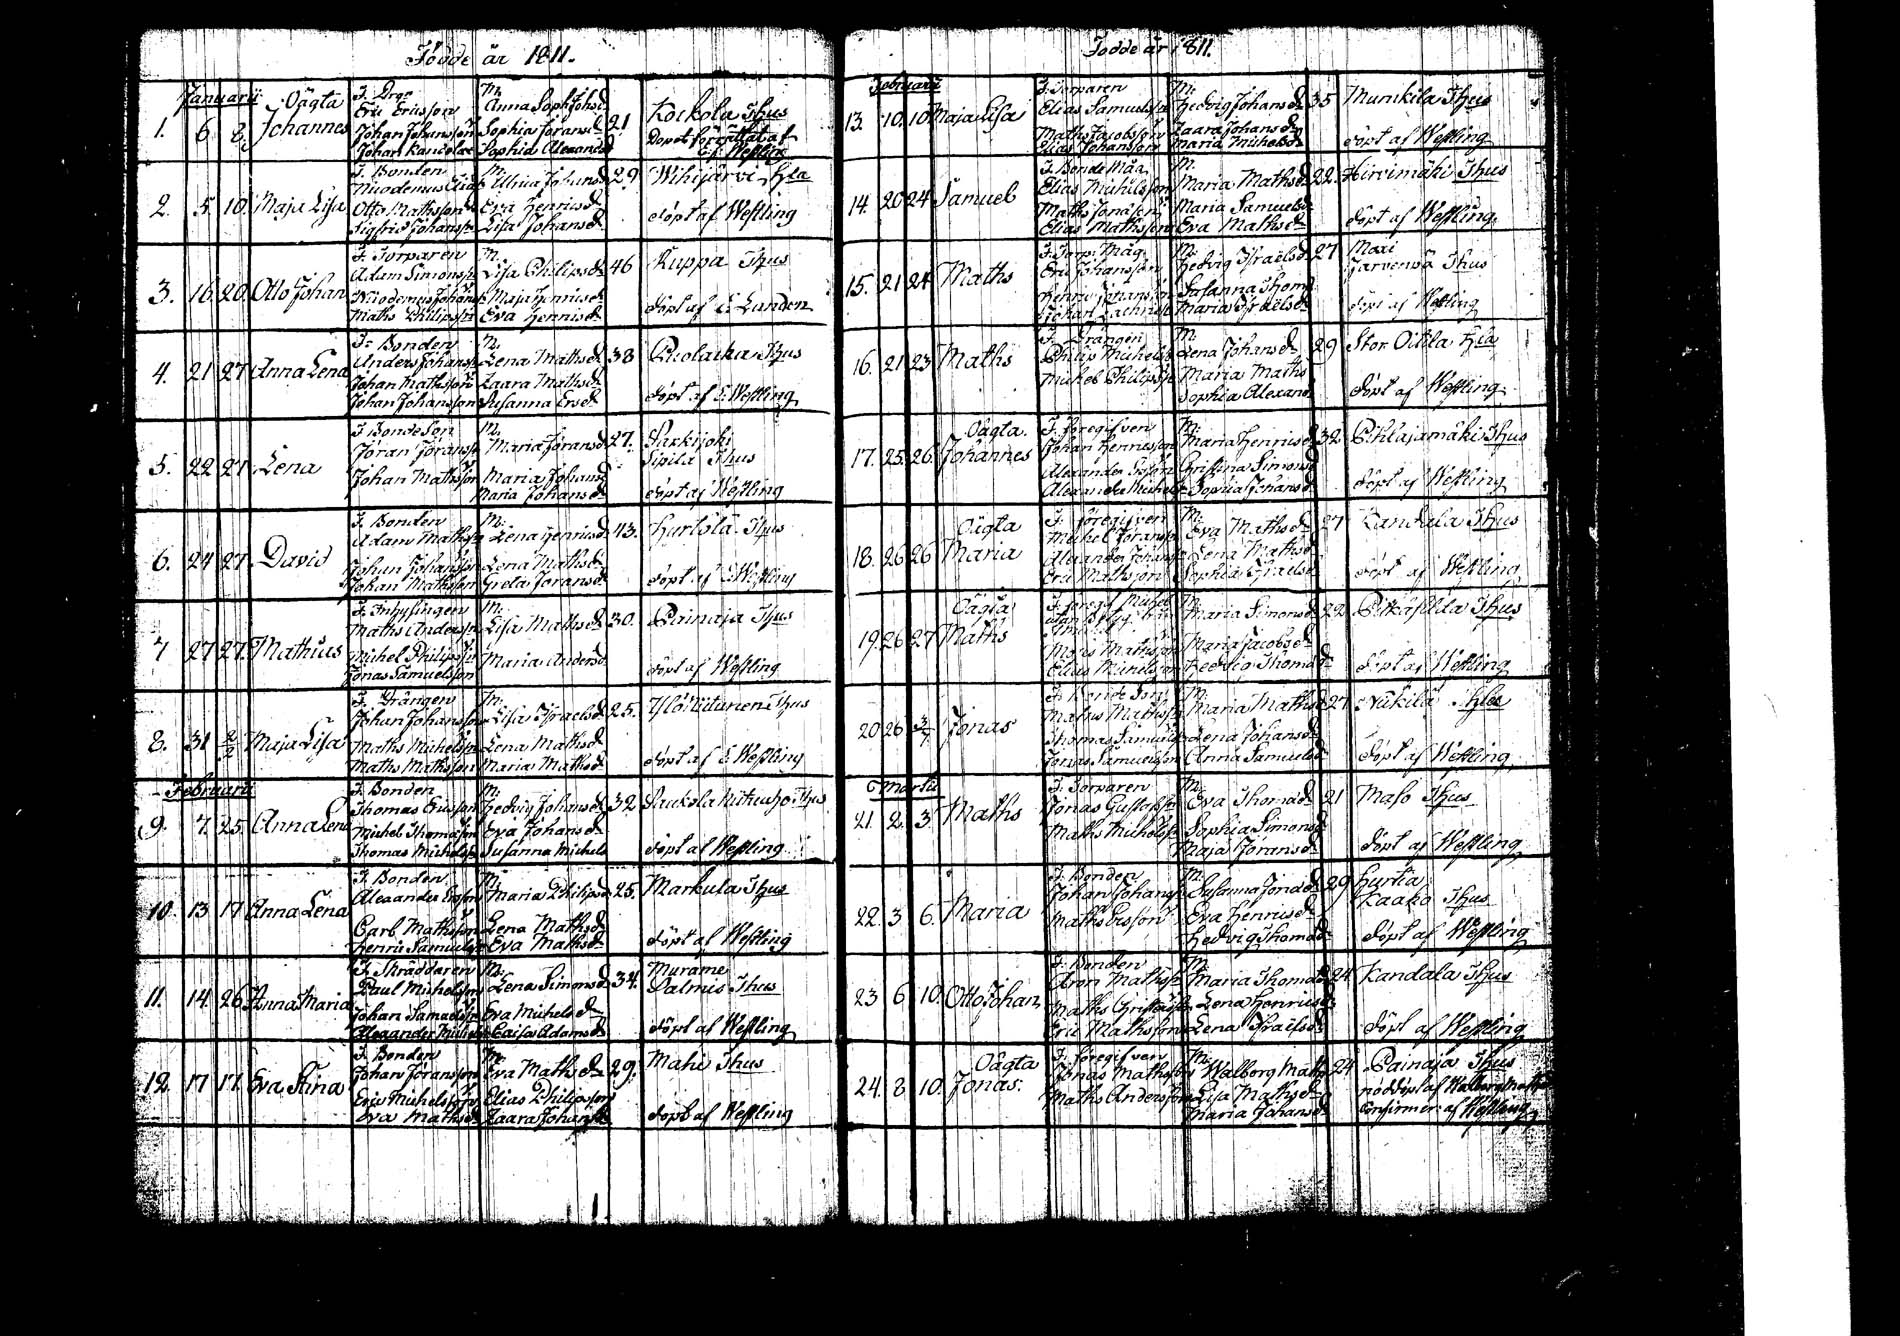 Födde år 1811.
Januarii
1. 6 8 Oägta Johannes
F. Drgn Eric Ericsson
M. Anna Soph Johsd. 21
Johan Johansson Sophia Joransd.
Johan Sophia Alexandersd
Kockola Thus
Dopet förrättat af Westling
2. 5. 10. Maja Lisa
F. Bonden Nicodemus Elias
M. Ulrica Johansd. 29
Otto Mathsson Eva Henricsd.
Sigfrid Johanss. Lisa Johansd.
Wihijärvi Kla
döpt af Westling
3. 16. 20. Otto Johan
F. Torparen Adam Simonss.
M. Lisa Philipsd. 46
Nicodemus Johanss. Maja Henricsd.
Maths Philipsson Eva Henricsd.
Ruppa Thus
döpt af E Lunden
4. 21 27 Anna Lena
F. Bonden Anders Johanss.
M. Lena Mathsd. 38
Johan Mathsson Zaara Mathsd.
Johan Johansson Susanna Ersd.
Thus
döpt af E Westling
5. 22 27 Lena
F. Bondeson Jöran Jöranss.
M. Maria Joransd. 27.
Johan Mathsson Maria Johansd.
Maria Johansd.
Särkijoki
Sipilä Thus
döpt af Westling
6. 24 27. David
F. Bonden Adam Mathss.
M. Lena Henricsd. 43.
Johan Johansson Lena Mathsd.
Johan Mathsson Greta Joransd.
Thus
döpt af E Westling
7 27 27. Mathias
F. Inhysingen Maths Anderss.
M. Lisa Mathsd. 30.
Michel Philipss. Maria Andersd.
Jonas Samuelsson
Painaja Thus
döpt af Westling
8. 31 2/2 Maja Lisa
F. Drängen Johan Johansson
M. Lisa Israelsd. 25.
Maths Michelss. Lena Mathsd.
Maths Mathsson Maria Mathsd.
Thus
döpt af E Westling
Februarii
9. 7. 25. Anna Lena
F. Bonden Thomas Ericsson
M. Hedvig Johansd. 32.
Michel Thomasson Eva Johansd.
Thomas Michelss. Susanna Michels
Thus
döpt af Westling
10. 13 17 Anna Lena
F. Bonden Alexander Ersson
M. Maria Philipsd. 25.
Carl Mathsson Lena Mathsd.
Henric Samuelss. Eva Mathsd.
Markula Thus
döpt af Westling
11. 14. 26. Anna Maria
F. Skräddaren Paul Michelsson
M. Lena Simonsd. 34.
Johan Samuelss. Eva Michelsd.
Alexander Michelss. Caisa Adamsd.
Murame
Palmis Thus
döpt af Westling
12. 17 17. Eva Stina
F. Bonden Johan Joransson
M. Eva Mathsd. 29.
Eric Michelsson Elias Philipsson
Eva Mathsd. Zaara Johansd.
Mahi Thus
döpt af Westling
Födde år 1811.
Februarii
13. 10. 10 Maja Lisa
F. Torparen Elias Samuelss.
M. Hedvig Johansd. 35
Maths Jacobsson Zaara Johansd.
Elias Johansson Maria Michelsd.
Munikila Thus
döpt af Westling
14. 20 24 Samuel
F. Bonde Måg Elias Michelsson
M. Maria Mathsd. 22.
Maths Jonasson Maria Samuelsd.
Elias Mathsson Eva Mathsd.
Hirvimäki Thus
döpt af Westling
15. 21 24 Maths
F. Torp. Måg Eric Johansson
M. Hedvig Israelsd. 27
Henric Johansson Susanna Thom
Johan Maria Israelsd.
Järvenpä Thus
döpt af Westling
16. 21 23 Maths
F. Drängen Philip Michelss.
M. Lena Johansd. 29
Michel Philipss. Maria Maths
Sophia Alexand
Stor Kla
döpt af Westling
17. 25. 26. Oägta. Johannes
F. föregifven Johan Henricsson
M. Maria Henricsd. 32.
Alexander Ersson Christina Simonsd.
Alexander Michelss. Sophia Johansd.
Pihlajamäki Thus
döpt af Westling
18. 26 26 Oägta Maria
F. föregifven Michel Joranss.
M. Eva Mathsd. 27
Alexander Johanss. Lena Mathsd.
Eric Mathsson Sophia Israelsd.
Kandala Thus
döpt af Westling
19. 26 27 Oägta Maths
F. föregif. Michel
M. Maria Simonsd. 22.
Maths Mathsson Maria Jacobsd.
Elias Michelsson Hedvig Thomasd.
Thus
döpt af Westling
20 26 3/7 Jonas
F. Bonde Son Mathias Mathss.
M. Maria Mathsd. 27
Thomas Samuelss. Lena Johansd.
Jonas Samuelsson Anna Samuelsd.
Nikilä Kla
döpt af Westling
Martii
21. 2. 3. Maths
F. Torparen Jonas Gustafss.
M. Eva Thomasd. 21
Maths Michelss. Sophia Simonsd.
Maja Joransd.
Maso Thus
döpt af Westling
22. 3 6. Maria
F. Bonden Johan Johanss.
M. Susanna Jonæd. 29
Maths Ersson Eva Henricsd.
Hedvig Thomasd.
Hurtia
Kaako Thus
döpt af Westling
23 6 10. Otto Johan
F. Bonden Aron Mathsson
M. Maria Thomasd. 24
Maths Lena Henricsd.
Eric Mathsson Lena Israelsd.
Kandala Thus
döpt af Westling
24. 8 10. Oägta Jonas.
F. föregifven Jonas Mathsson
M. Walborg Maths 24
Maths Andersson Lisa Mathsd.
Maria Johansd.
Painaja Thus
nöddöpt af Walborg Mathsd
confirmer. af Westling